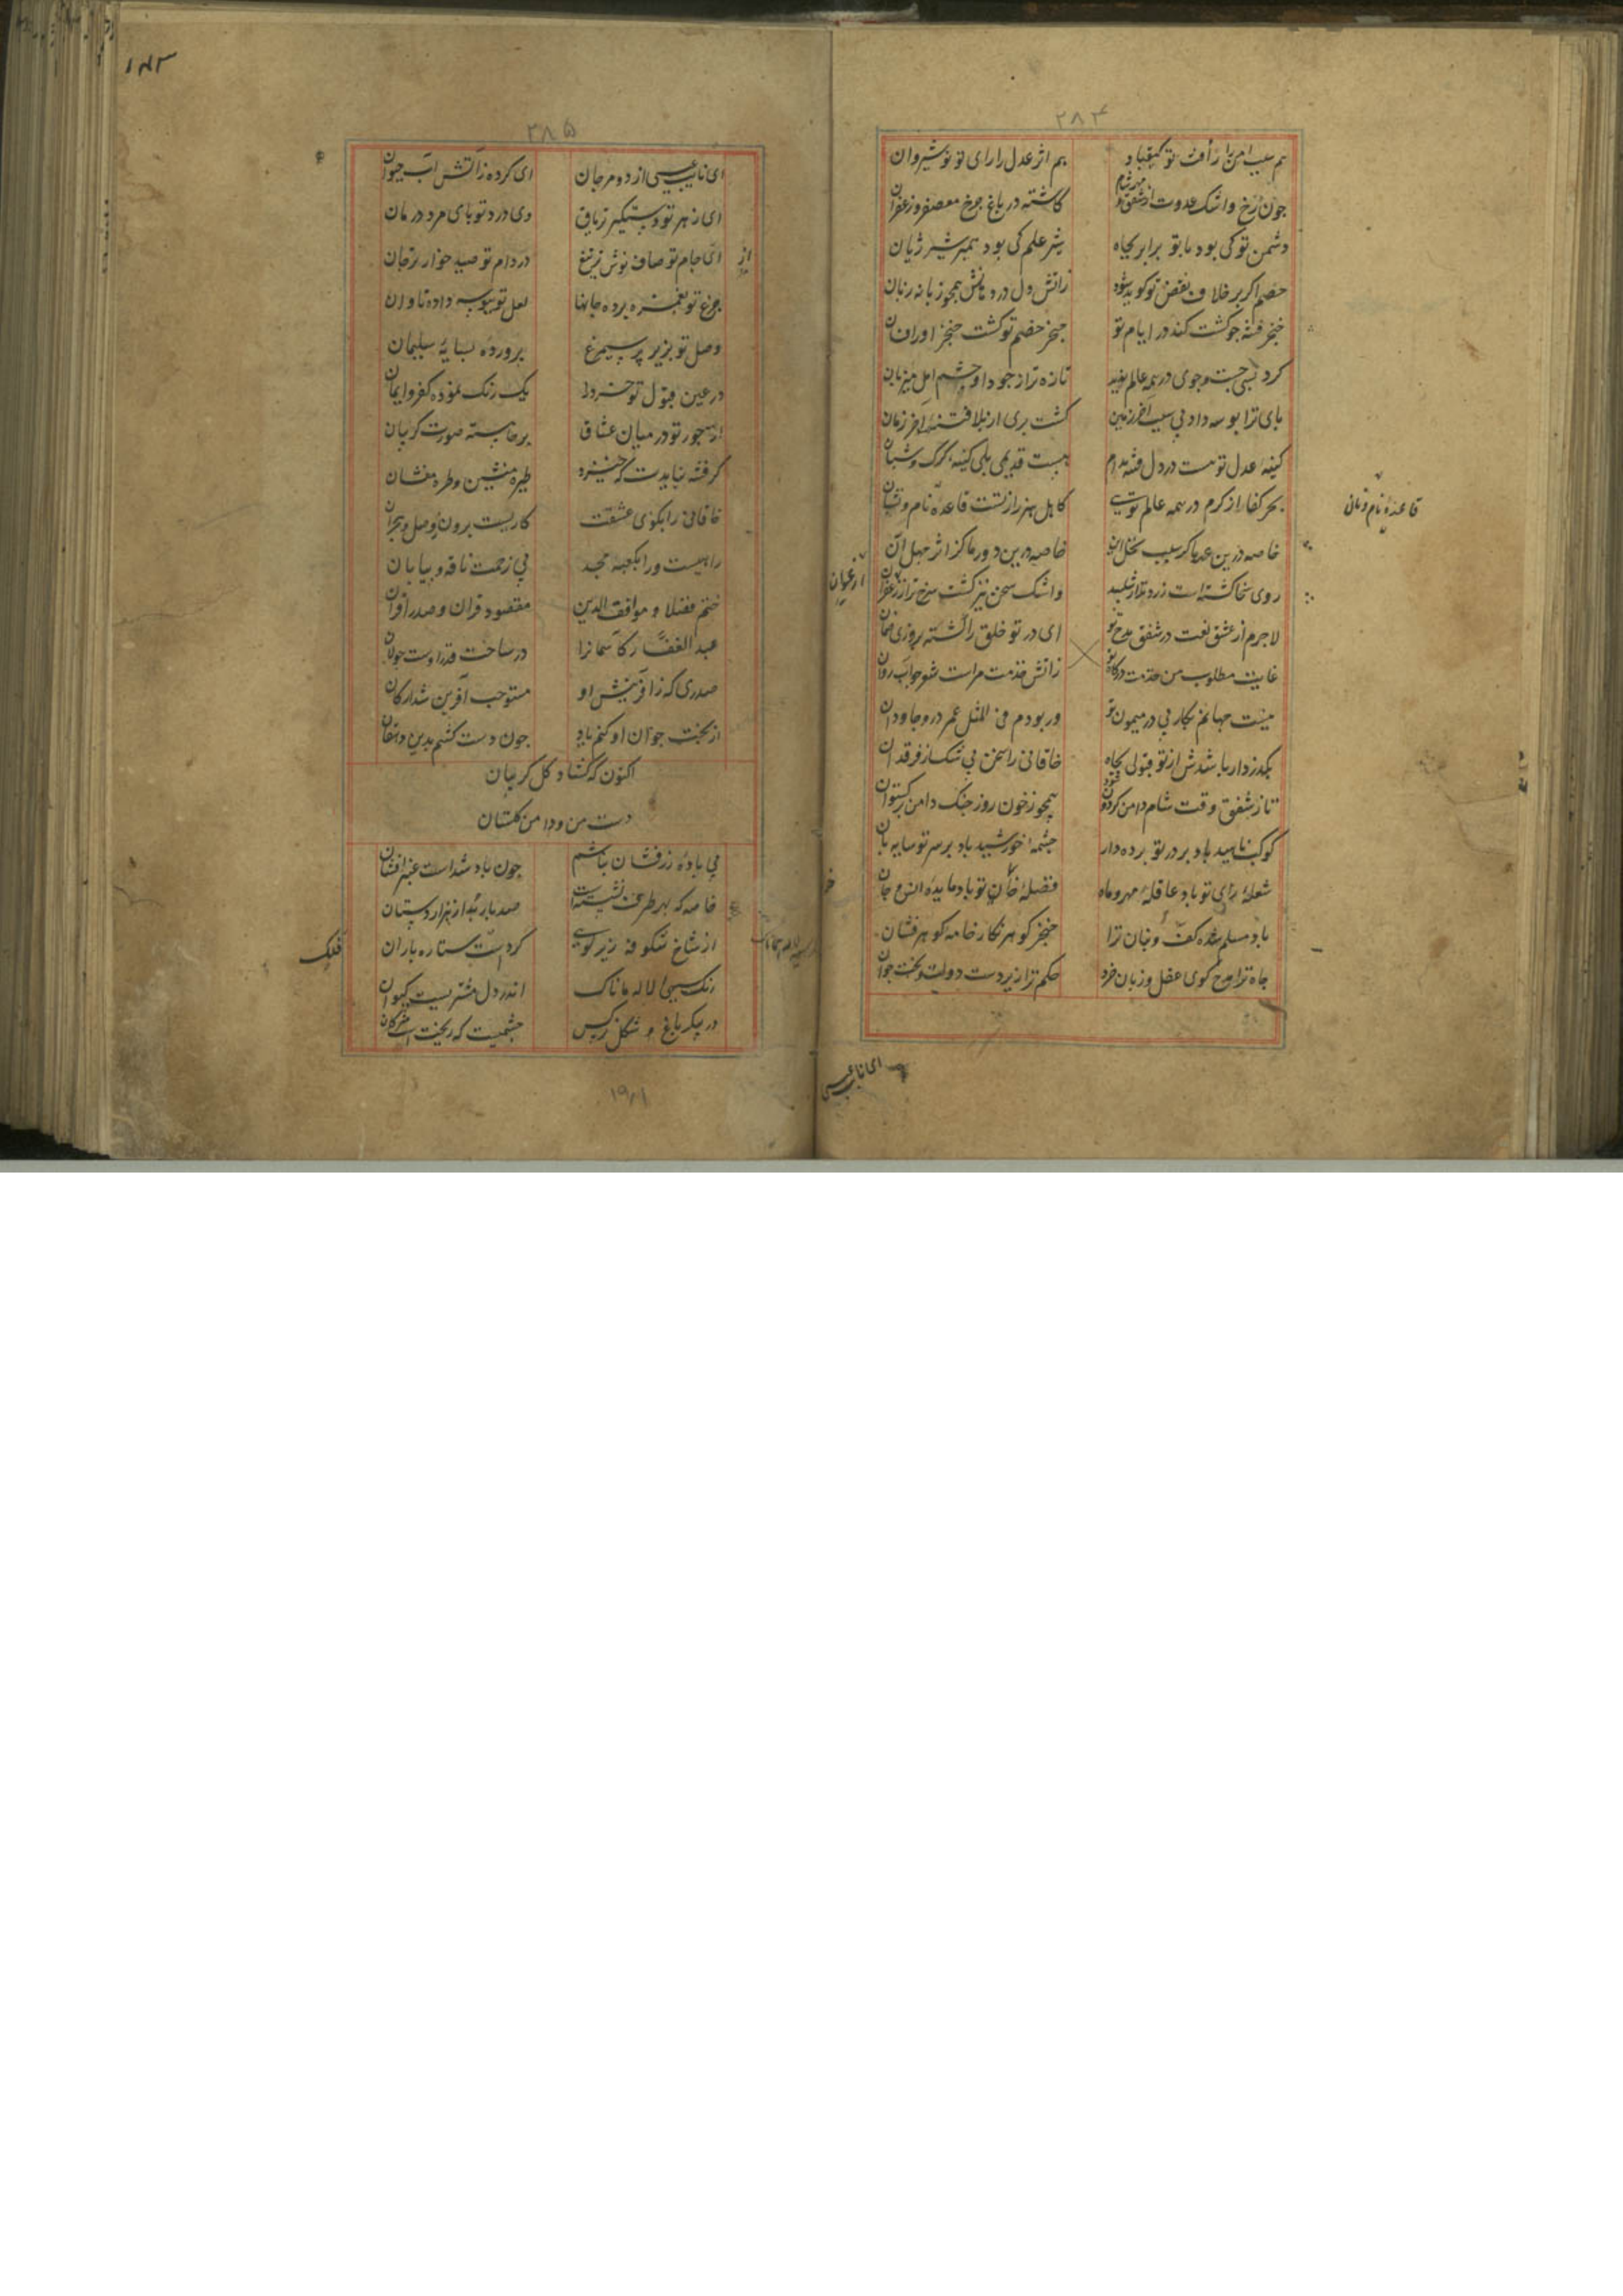 ۲۸۴
هم سبب امن را رأفت تو کیقباد هم اثر عدل را رای تو نوشیروان
چون رخ و اشک عدوت از شفق کاشته در باغ چرخ معصفر و زعفران
دشمن تو کی بود با تو برابر بجاه شیر علم کی بود همبر شیر ژیان
خصم اکر بر خلاف نقص تو کوید شود زاتش دل در دهانش همچو زبانه زبان
خنجر فتنه چو کشت کند در ایام تو حنجر خصم تو کشت خنجر اورا فسان
کرد بسی جست و جوی در همه عالم تازه تر از جود او چشم امل میزبان
پای ترا بوسه داد کشت بری از بلا فتنه آخر زمان
کینه عدل تو هست در دل فتنه مدام هست قدیمی بلی کینه کرک و شبان
بحر کفا از کرم در همه عالم تویی کاهل هنر را ز تست قاعده نام و نشان
قاعده نام و نانی
خاصه درین کز اثر جهل آن
روی سخا کشته است زرد تر از شنبلید و اشک سخن نیز کشت سرخ تر از زعفران
ارغوان
لاجرم از عشق نعت در شفق مدح تو ای در تو خلق را کشته بروزی ضمان
غایت مطلوب من خدمت درکاه تو زاتش خدمت مراست شعر چو آب روان
نیست جهانم بکار بی در میمون تو ور بودم فی المثل عمر درو جاودان
بکذرد ار باشدش از تو قبولی بجاه خاقانی را سخن بی شک از فرقدان
تا ز شفق وقت شام دامن کردون شود همچو ز خون روز جنک دامن برکستوان
کوکب ناهید باد بر در تو پرده دار چشمه خورشید باد بر سر تو سایه بان
شعله رای تو باد عاقله مهر و ماه فضله خوان تو باد مایده انس و جان
باد مسلم شده کف و بنان ترا خنجر کوهر نکار خامه کوهر فشان
جاه ترا مدح کوی عقل و زبان خرد حکم ترا زیردست دولت و بخت جوان
ای نایب عیسی
۱۸۳
۲۸۵
ای نایب عیسی از دو مرجان ای کرده ز آتش آب حیوان
ای زهر تو دستکیر تریاق وی درد تو پای مرد درمان
ای جام تو صاف نوش در دام تو صید خوار تر جان
چرغ تو بغمزه برده جانها لعل تو ببوسه داده تاوان
وصل تو بزیر پر سیمرغ پرورده بسایه سلیمان
در عین قبول تو یک رنک نموده کفر و ایمان
از جور تو در میان عشاق برخاسته صورت کریبان
کر فتنه نبایدت که خیزد طیره منشین و طره مفشان
خاقانی را بکوی عشقت کاریست برون ز وصل و هجران
راهیست ورا بکعبه مجد بی زحمت ناقه و بیابان
ختم فضلا موافق الدین مقصود قران و صدر اقران
عبد الغفار کاسمانرا در ساحت قدر اوست جولان
صدری که ز آفرینش او مستوجب آفرین شد ارکان
از بخت جوان او کنم یاد چون دست کشم بدین
اکنون که کشاد کل کریبان
دست من و دامن کلستان
بی باده زرفشان نباشم چون باد شد است عنبر افشان
خاصه که بهر طرف نشسته است صد باربد از هزار دستان
از شاخ شکوفه زیر کویی کردست ستاره باران
فلک
رنک سیهی لاله ماناک اندر دل مشتریست کیوان
در پیکر باغ و شکل نرکس چشمیست که ریخت است مژکان
۱۹۱